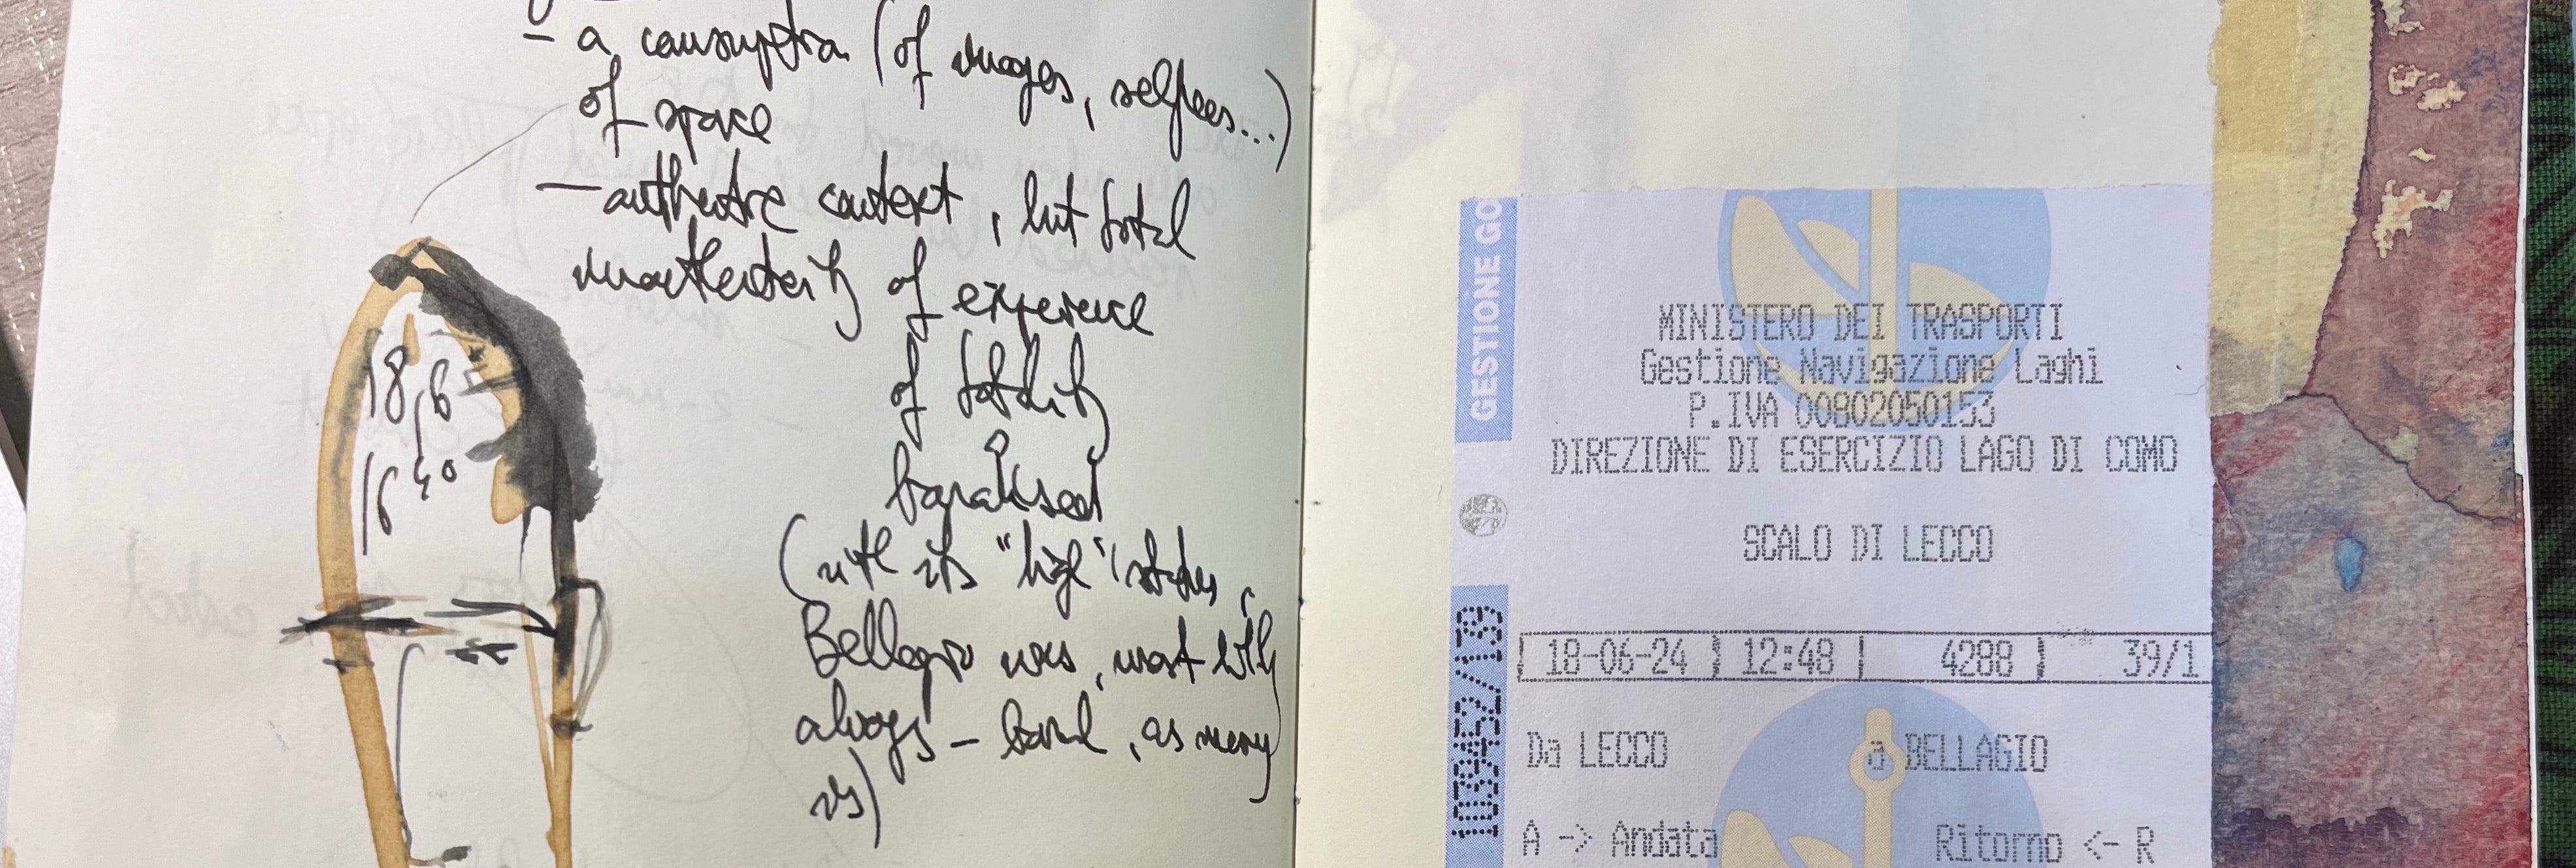 - a consumption (of images, selfies...)
of space
- authentic context, but total
inauthenticity of experience
of totality
banalised
(with its "high" status,
Bellagio was, most likely
always - banal, as many
is)
18,6
16 40
GESTIONE GO
1039452/139
MINISTERO DEI TRASPORTI
Gestione Navigazione Laghi
P.IVA 00802050153
DIREZIONE DI ESERCIZIO LAGO DI COMO
SCALO DI LECCO
18-06-24 | 12:48 | 4288 | 39/1
Da LECCO a BELLAGIO
A -> Andata Ritorno <- R